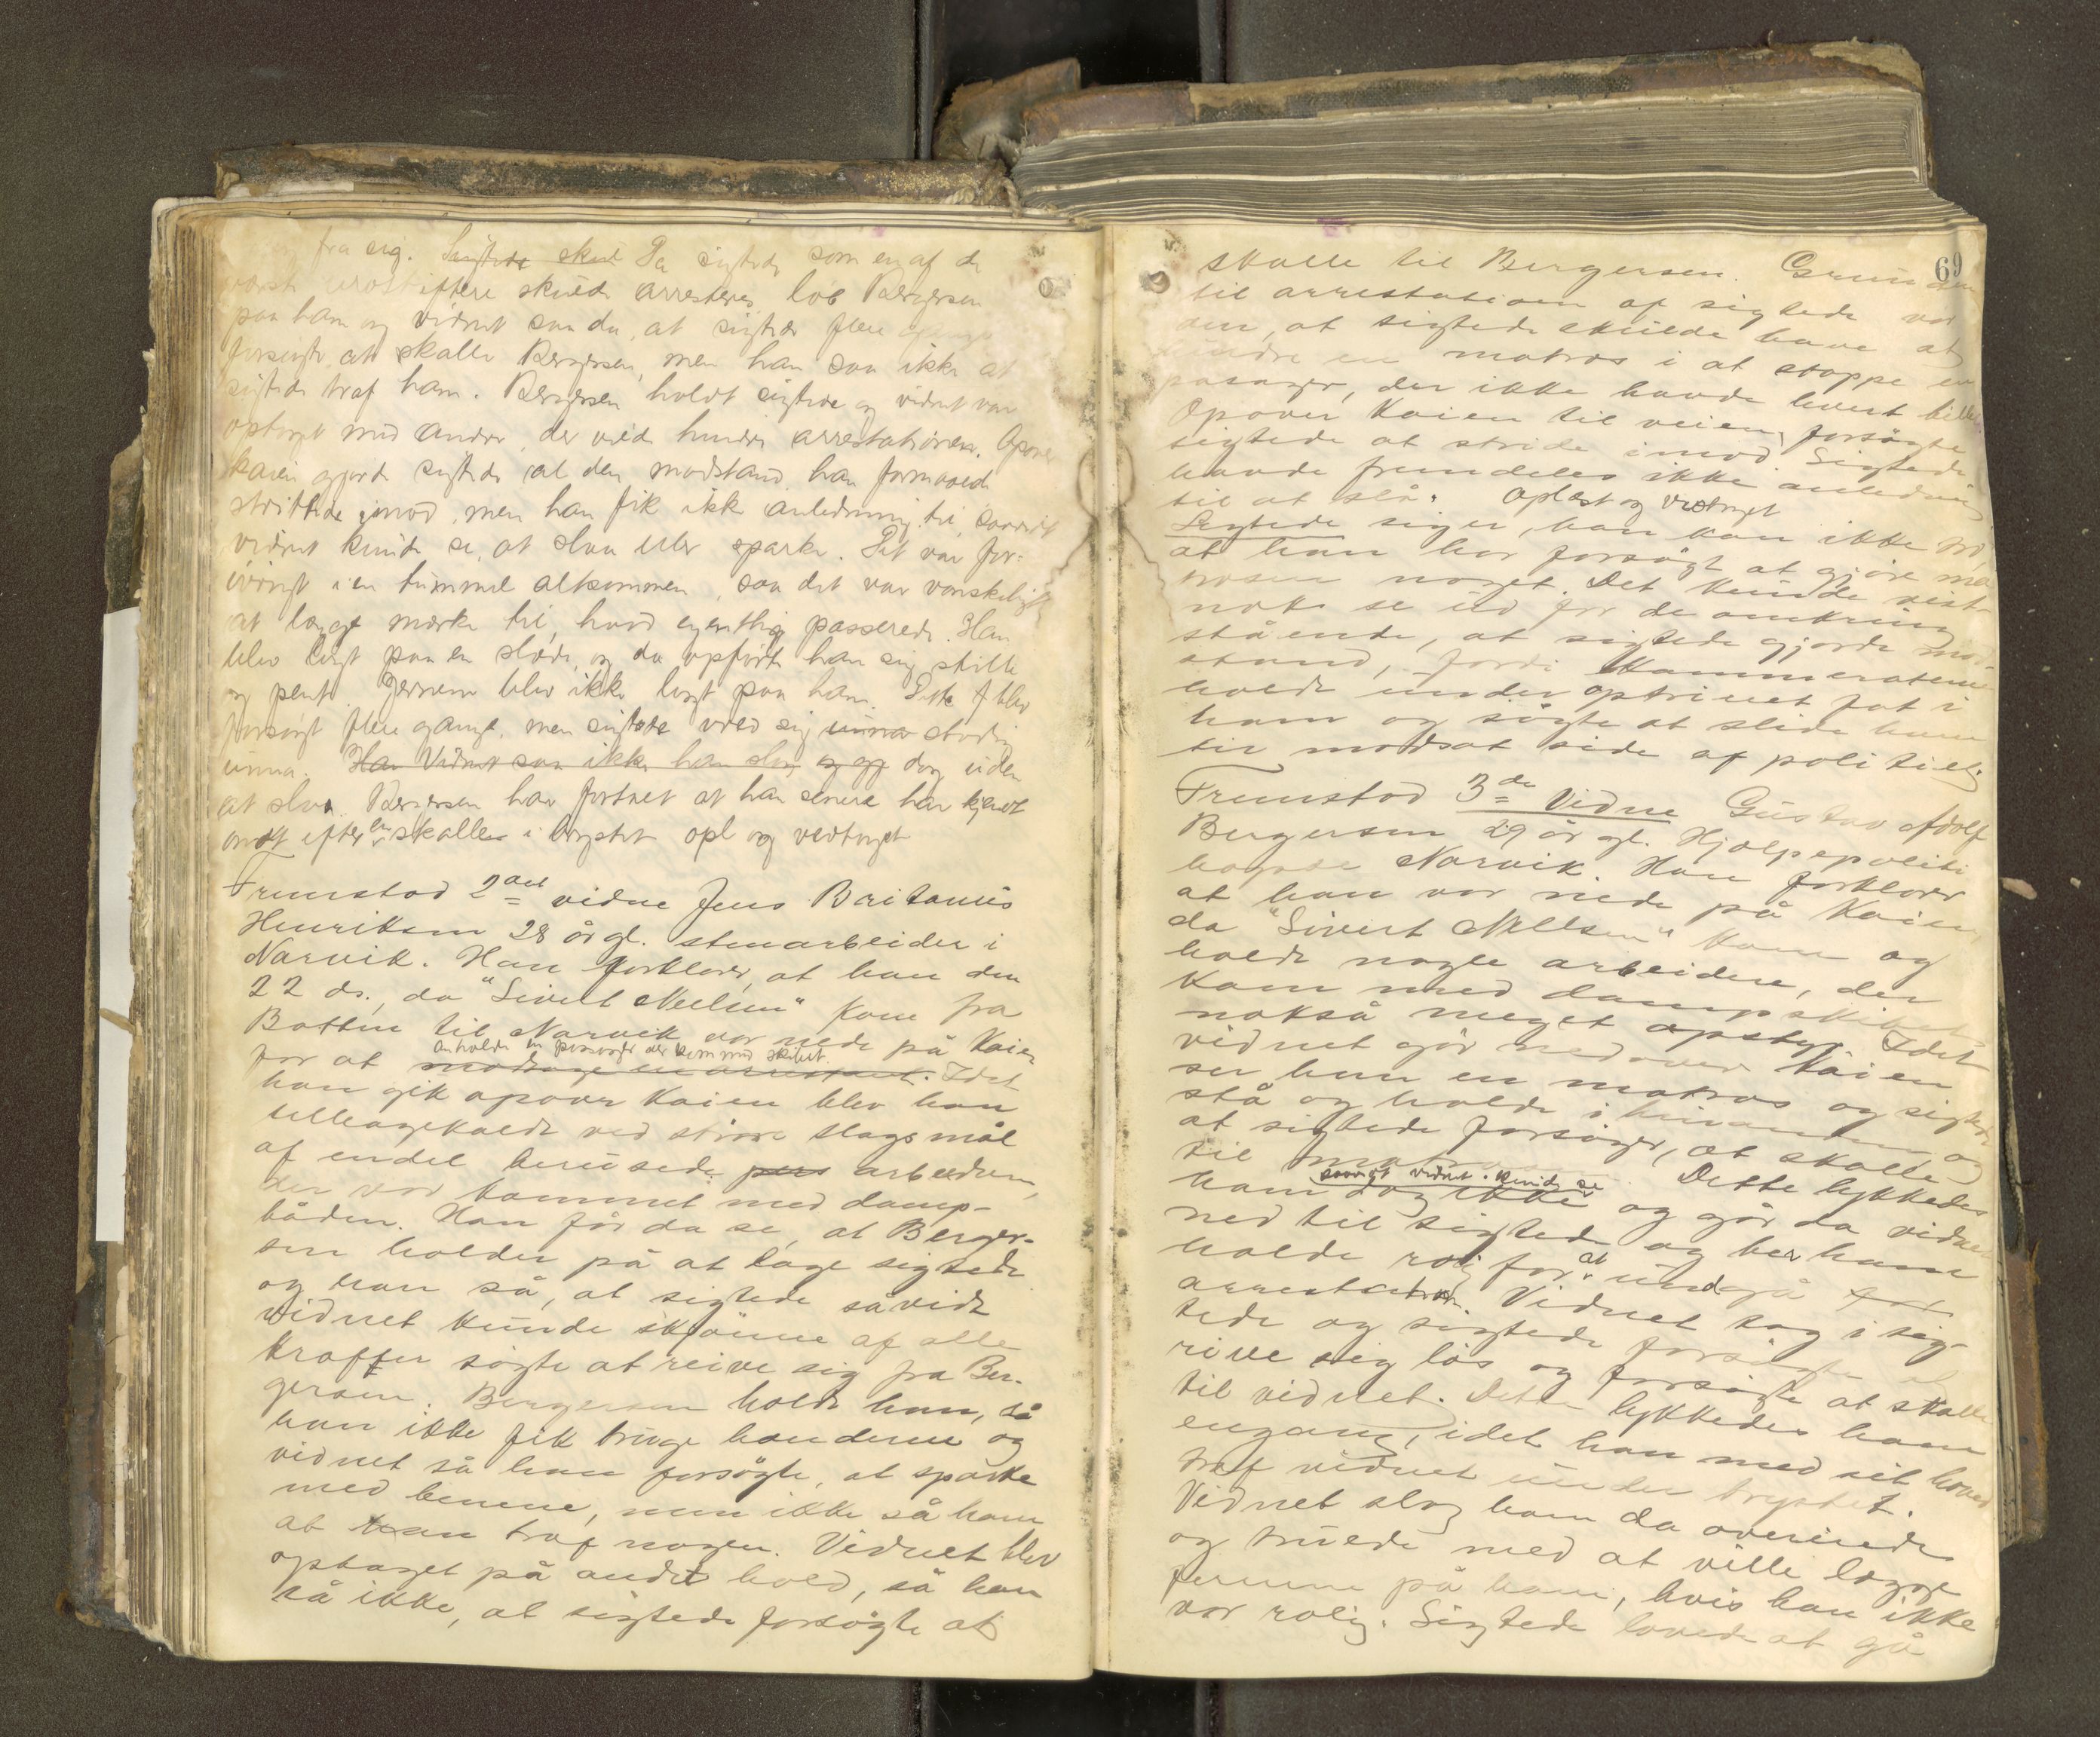 fra sig. Sigtede skul Da sigtede som en af de
værste urostiftere skulde arresteres, løb Bergersen
paa ham og vidnet saa da, at sigtede flere gange
forsøgte at skalle Bergersen, men han saa ikke at
sigtede traf ham. Bergersen holdt sigtede og vidnet var
optaget med andre, der vilde hindre arrestationen. Opover
kaien gjorde sigtede al den modstand han formaaede
strittede imod, men han fik ikke anledning til, saavidt
vidnet kunde se, at slaa eller sparke. Det var for-
øvrigt i en tummel altsammen, saa det var vanskeligt
at lægge mærke til, hvad egentlig passerede. Han
blev lagt paa en slæde, og da opførte han sig stille
og pent. Jernene blev ikke lagt paa ham. Dette blev
forsøgt flere gange, men sigtede vred sig unna stadig
unna. Han Vidnet saa ikke han slog og dog uden
at slaa. Bergersen har fortalt at han senere har kjendt
ondt efter en skalle i brystet opl og vedtaget
Fremstod 2det vidne Jens Britanus
Henriksen 28 år gl. stenarbeider i
Narvik. Han forklarer, at han den
22 ds., da "Sivert Nielsen" kom fra
Botten til Narvik var nede på Kaien
anholde en passager der kom med skibet.
for at modtage en arrestant. Idet
han gik opover Kaien blev han
tilbagekaldt ved større slagsmål
af endel berusede pers arbeidere,
der var kommet med damp-
båden. Han får da se, at Berger-
sen holder på at tage sigtede
og han så, at sigtede såvidt
vidnet kunde skjønne af alle
kræfter søgte at reive sig fra Ber-
gersen. Bergersen holdt ham, så
han ikke fik bruge hænderne og
vidnet så han forsøgte, at sparke
med benene, men ikke så ham
at han traf nogen. Vidnet blev
optaget på andet hold, så han
så ikke, at sigtede forsøgte at
69
skalle til Bergersen. Grunden
til arrestationen af sigtede var
den, at sigtede skulde have at
hindre en matros i at stoppe en
pasager, der ikke havde levert billet.
Opover Kaien til veien, forsøgte
sigtede at stride imod. Sigtede
havde fremdeles ikke anledning
til at slå. Oplæst og vedtaget
Sigtede siger, han kan ikke tro,
at han har forsøgt at gjøre ma-
trosen noget. Det kunde vist-
nok se ud for de omkring
stående, at sigtede gjorde mod-
stand, fordi Kammeraterne
holdt under optrinet fat i
ham og søgte at slide ham
til modsat side af politiet
Fremstod 3de Vidne Gustav Adolf
Bergersen 29 år gl. Hjælpepoliti
bopæl Narvik. Han forklarer
at han var nede på Kaien,
da "Sivert Nielsen" kom og
holdt nogle arbeidere, der
kom med dampskibet
nokså meget opstyr. Idet
vidnet går nedover Kaien
ser han en matros og sigtede
stå og holde i hinanden og
at sigtede forsøger, at skalle
til matrosen. Dette lykkedes
saavidt vidnet kunde se
ham dog ikke og går da vidnet
ned til sigtede og ber ham
holde rolig for at undgå for
arrestation. Vidnet tog i sig-
tede og sigtede forsøgte at
rive sig løs og forsøgte at skalle
til vidnet. Dette lykkedes ham
engang, idet han med sit hoved
traf vidnet under brystet.
Vidnet slog ham da overende
og truede med at ville lægge
jernene på ham, hvis han ikke
var rolig. Sigtede lovede at gå